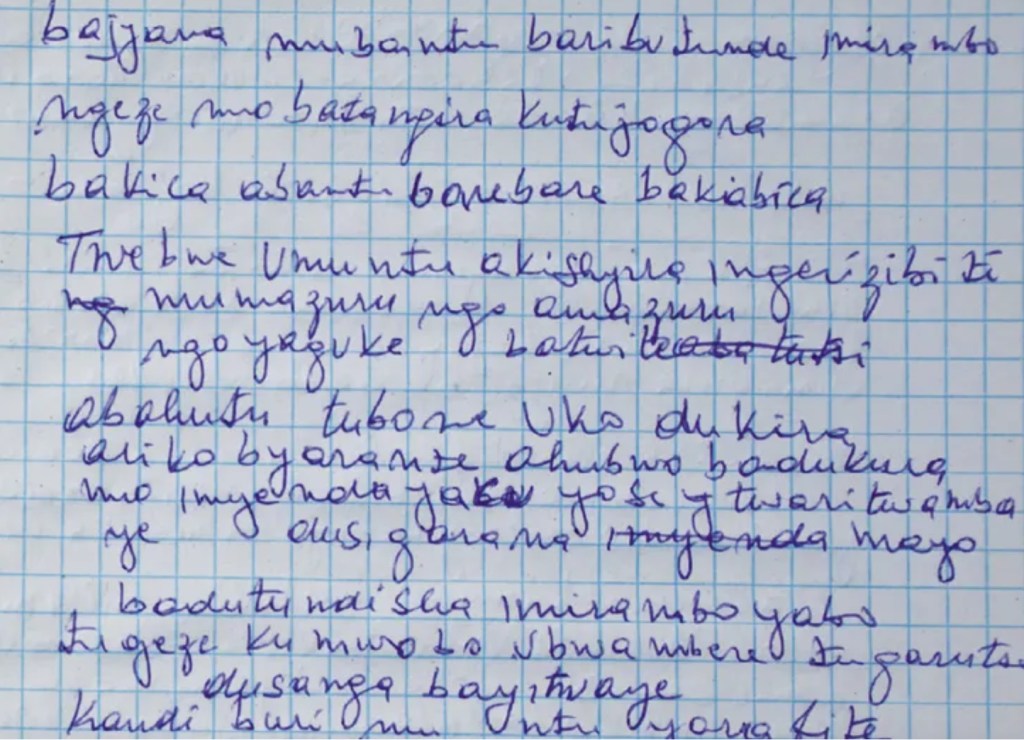 bajyana mubantu baributunde imirambo
ngeze mo batangira kutujogora
bakica abantu barebare bakabica
Twebwe Umuntu akishyira ingeri zibiti
mumazuru ngo amazuru
ngo yaguke batwi
abahutu tubone Uko dukira
ariko byaranze ahubwo badukura
mo imyenda yose y twari twamba
ye dusigarana mayo
badutundisha imirambo yabo
tugeze ku mwobo Ubwambere tugarutse
dusanga bayitwaye
Kandi buri mu ntu yarafite